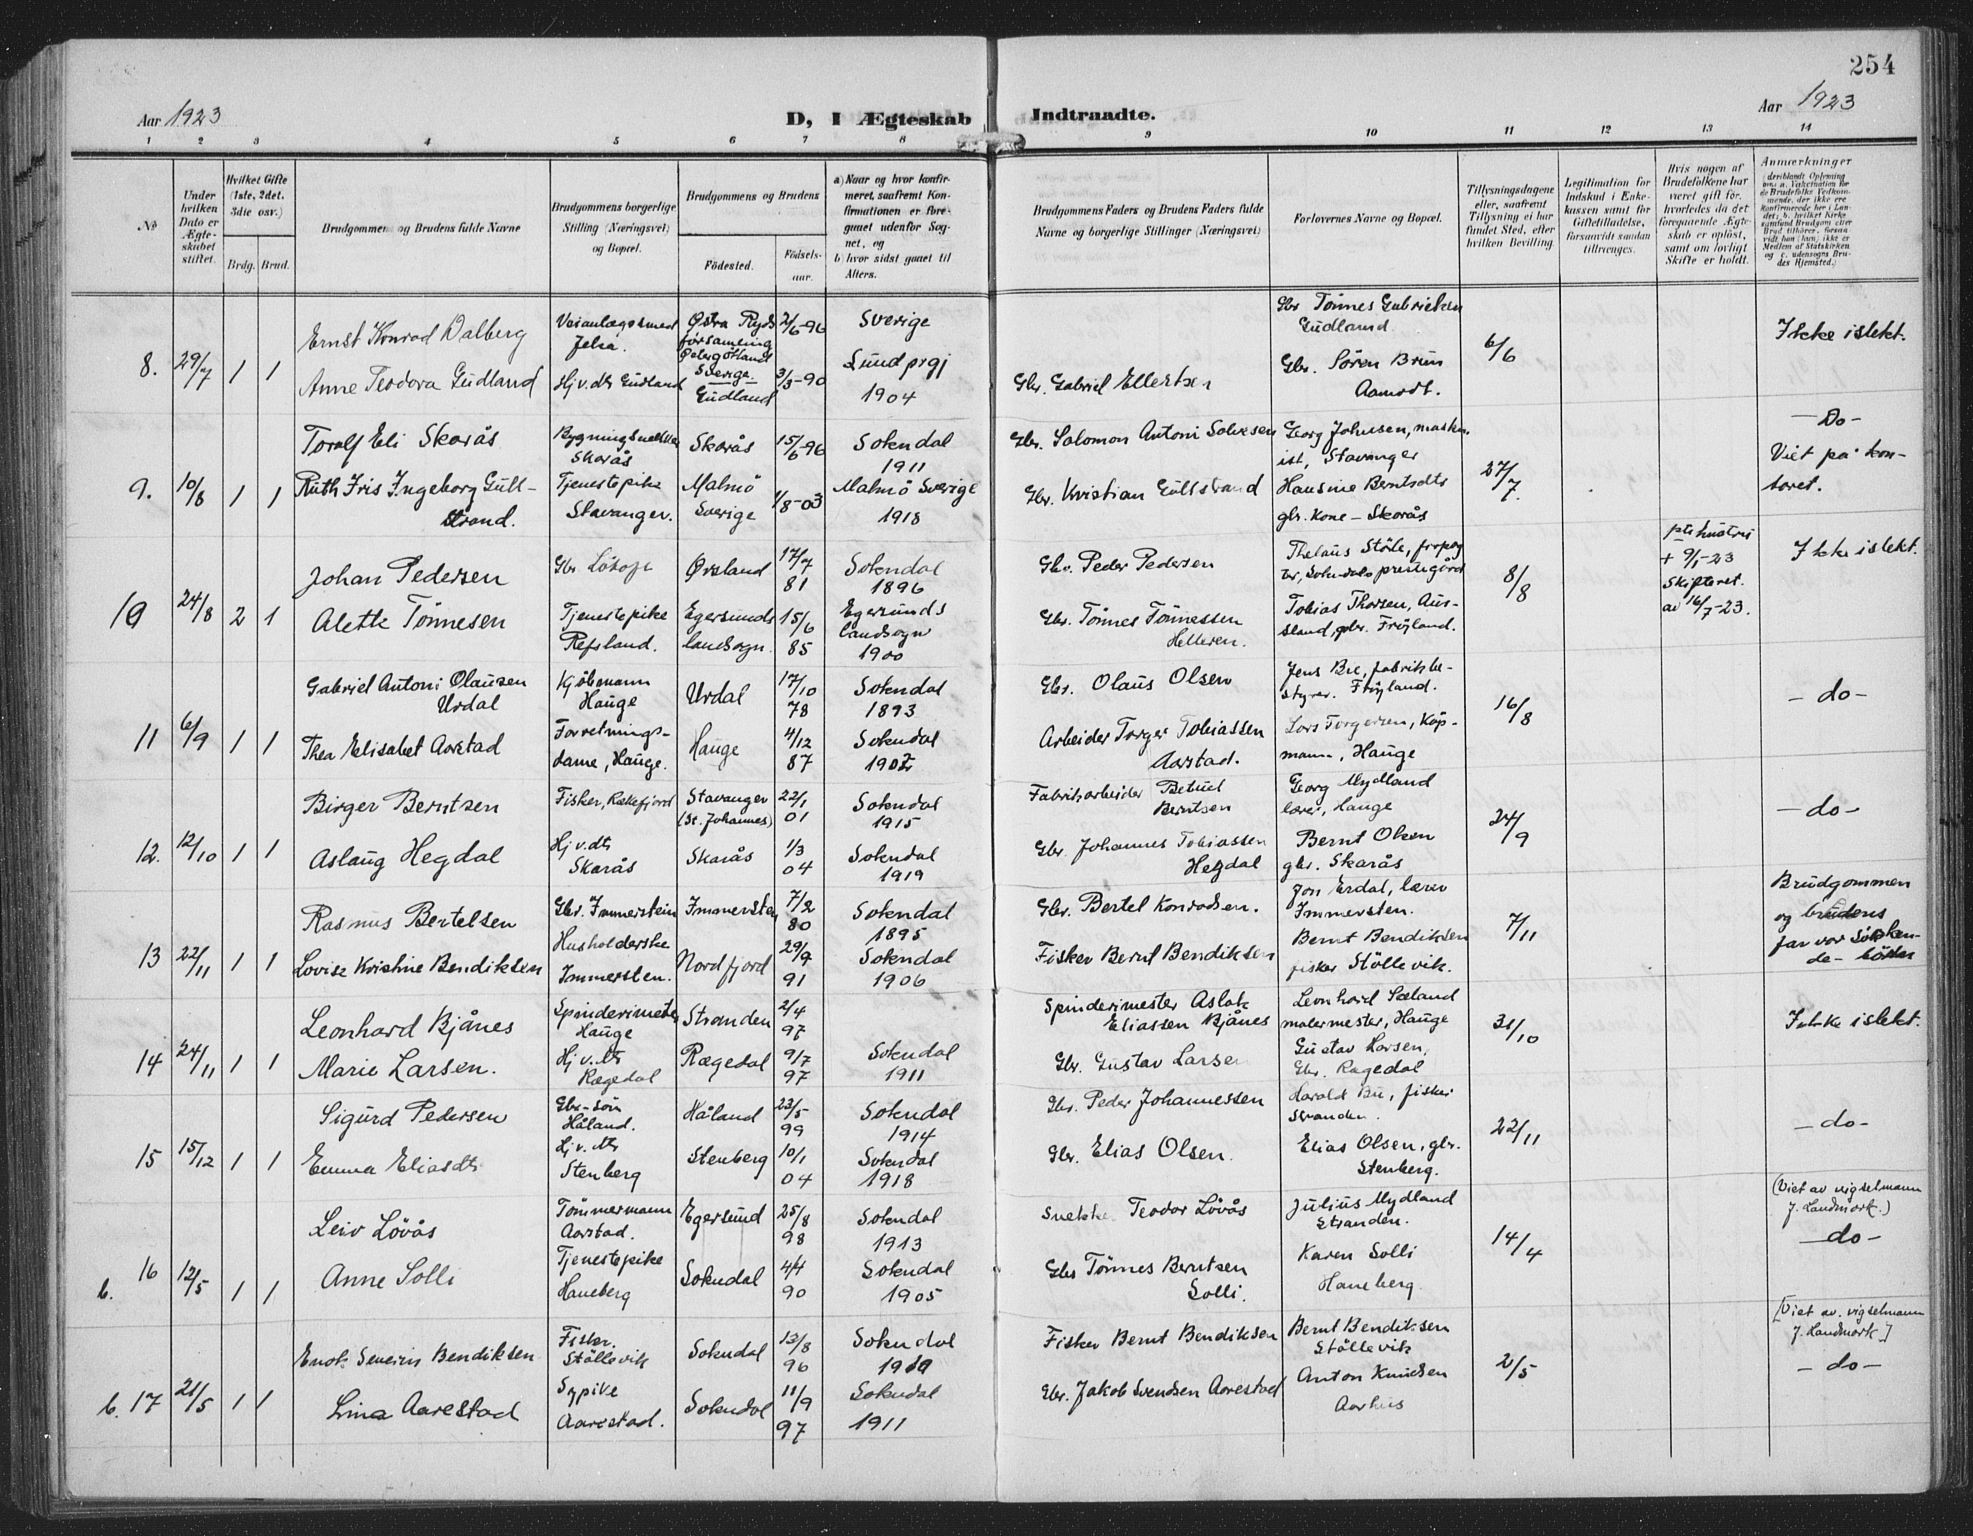 254
Aar 1923
D, I Ægteskab Indtraadte.
Aar 1923
1 2 3 4 5 6 7 8 9 10 11 12 13 14
No
Under hvilken Dato er Ægteskabet stiftet.
Hvilket Gifte (1ste, 2det, 3die osv.)
Brdg. Brud.
Brudgommens og Brudens fulde Navne
Brudgommens borgerlige Stilling (Næringsvei) og Bopæl.
Brudgommens og Brudens
Fødested.
Fødselsaar.
a) Naar og hvor konfirmeret, saafremt Konfirmationen er foregaaet udenfor Sognet, og
b) hvor sidst gaaet til Alters.
Brudgommens Faders og Brudens Faders fulde Navne og borgerlige Stillinger (Næringsvei)
Forlovernes Navne og Bopæl.
Tillysningsdagene eller, saafremt Tillysning ei har fundet Sted, efter hvilken Bevilling.
Legitimation for Indskud i Enkekassen samt for Giftetilladelse, forsaavidt saadan tiltrænges.
Hvis nogen af Brudefolkene har været gift før, hvorledes da det foregaaende Ægteskab er opløst, samt om lovligt Skifte er holdt.
Anmærkninger
8. 29/7 1 1
Ernst Konrad Dalberg
Veianlægssmed Jelsa.
Østra Ryds församling Östergötland Sverige.
2/6-96
Sverige
Gbr Tönnes Gabrielsen Gudland
6/6
Ikke i slekt.
Anne Teodora Gudland
Hj v. dtr Gudland
Gudland
3/3-90
Lund prgj 1904
Gbr. Gabriel Ellertsen
Gbr. Sören Brun Aamodt.
9. 10/8 1 1
Toralf Eli Skarås
Skarås
Skarås
15/6-96
Sokndal 1911
Gbr. Salomon Antoni
Georg Johnsen, maskinist, Stavanger
27/7.
- Do -
Viet på kontoret.
Ruth Iris Ingeborg Gullstrand.
Tjenestepike Stavanger.
Malmö Sverige
1/8-03
Malmö Sverige 1918
Gbr. Kristian Gullstrand
Hansine Berntsdtr gbr. kone - Skarås
10 24/8 2 1
Johan Pedersen
Gbr
Ørsland
17/7 81
Sokndal 1896
Gbr. Peder Pedersen
8/8
+ 9/1-23 Skifteret. av 16/7-23.
Ikke i slekt.
Alette Tönnesen
Tjenestepike Refsland.
Egersunds landsogn.
15/6 85
Egersunds landsogn 1900
Gbr. Tönnes Tönnessen Helleren.
Tobias Thorsen, Ausland, gbr. Fröyland.
11 6/9 1 1
Gabriel Antoni Olausen Urdal
Kjöbmann Hauge
Urdal
17/10 78
Sokndal 1893
Gbr. Olaus Olsen
Jens Bu, fabrikbestyrer. Fröyland.
16/8
- do -
Thea Elisabet Aarstad
Forretningsdame, Hauge.
Hauge
4/12 87
Sokndal 1902
Arbeider Torger Tobiassen Aarstad.
Lars Torgersen, Köpmann, Hauge
12. 12/10 1 1
Birger Berntsen
Fisker, Rækefjord
Stavanger (St. Johannes)
22/1 01
Sokndal 1915
Fabrikarbeider Betuel Berntsen
Georg Mydland lærer, Hauge
24/9
- do -
Aslaug Hegdal
Hj v. dtr Skarås
Skarås
1/3 04
Sokndal 1919
Gbr. Johannes Tobiassen Hegdal
Bernt Olsen gbr. Skarås
13 22/11 1 1
Rasmus Bertelsen
Gbr. Immerstein
Immersten
7/2 80
Sokndal 1895
Gbr. Bertel Konradsen.
Jon Erdal, lærer Immersten.
7/11
Brudgommen og brudens far var
Lovise Kristine Bendiksen
Husholderske Immersten.
Nordfjord
29/9 91
Sokndal 1906
Fisker Bernt Bendiksen
Bernt Bendiksen fisker Stöllevik.
14 24/11 1 1
Leonhard Bjånes
Spinderimester Hauge
Stranden
2/4 97
Spinderimester Aslak Eliassen Bjånes
Leonhard Sæland malermester, Hauge
31/10
Ikke i slekt.
Marie Larsen.
Hj v. dtr Rægedal
Rægedal
9/7 97
Sokndal 1911
Gbr. Gustav Larsen
Gustav Larsen, Gbr. Rægedal
15 15/12 1 1
Sigurd Pedersen
Gbr-sön Håland.
Håland
23/5 99
Sokndal 1914
Gbr. Peder Johannessen
Harald Bu, fisker Stranden.
22/11
- do -
Emma Eliasdtr
Hj v. dtr Stenberg
Stenberg
10/1 04
Sokndal 1918
Gbr. Elias Olsen.
Elias Olsen, gbr. Stenberg.
b. 16 12/5 1 1
Leiv Lövås
Tömmermann Aarstad.
Egersund
25/8 98
Sokndal 1913
Snekker Teodor Lövås
Julius Mydland Stranden.
14/4
(Viet av vigselmann J. Landmark.)
- do -
Anne Solli
Tjenestepike Haneberg
Sokndal
4/4 90
Sokndal 1905
Gbr Tönnes Berntsen Solli.
Karen Solli Haneberg
b. 17 21/5 1 1
Enok Severin Bendiksen
Fisker. Stöllevik
Sokndal
13/8 96
Sokndal 1910
Fisker Bernt Bendiksen
Bernt Bendiksen Stöllevik
2/5
[Viet av. vigselmann J. Landmark]
- do -
Lina Aarestad
Sypike Aarestad.
Sokndal
11/9 97
Sokndal 1911
Gbr. Jakob Svendsen Aarestad
Anton Knudsen Aarhus